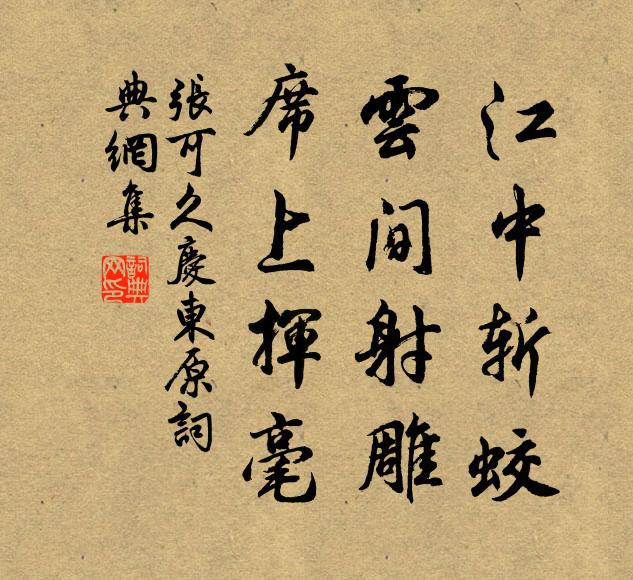 江中斬蛟
雲間射雕
席上揮毫
張可久慶東原詞
典網集
詞典网印